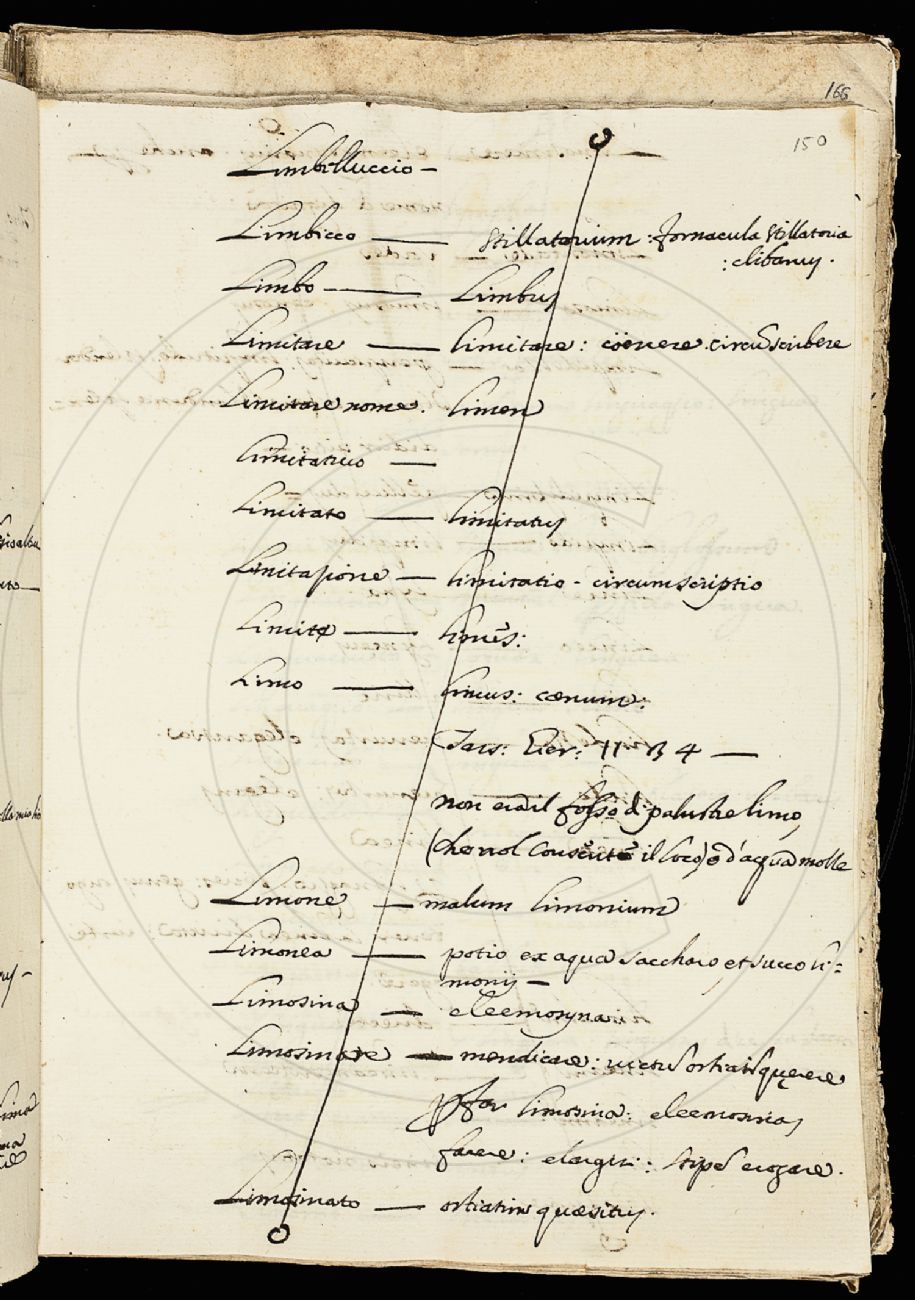 166
150
Limbelluccio –
Limbicco — stillatorium : fornacula stillatoria
: clibanus.
Limbo — Limbus
Limitare — limitare : cöercere. circũscribere
Limitare nome. limen
limitativo —
Limitato — limitatus
Limitazione — limitatio - circumscriptio
Limite — limes :
Limo — limus : cænum :
Tass: Lier: 11 B 4 —
non era il fosso di palustre limo,
(che nol consente il loco) o d'acqua molle
Limone — malum limonium
Limonea — potio ex aqua saccharo et succo li=
monij –
Limosina — eleemosyna
Limosinare — mendicare : victũ ostiatĩ quęrere
far limosina : eleemosinas
facere : elargiri : stipẽ erogare.
Limosinato — ostiatim quæsitus.